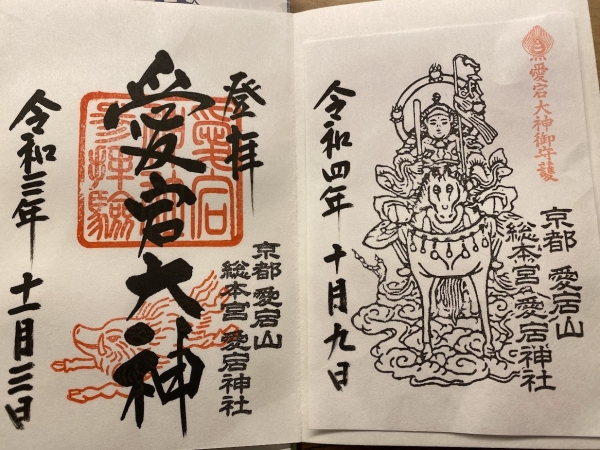 愛宕大神御守護
京都 愛宕山
総本宮 愛宕神社
令和四年 十月九日
登拝
京都 愛宕山
総本宮 愛宕神社
愛宕大神
愛宕
参拝験
令和三年 十一月三日